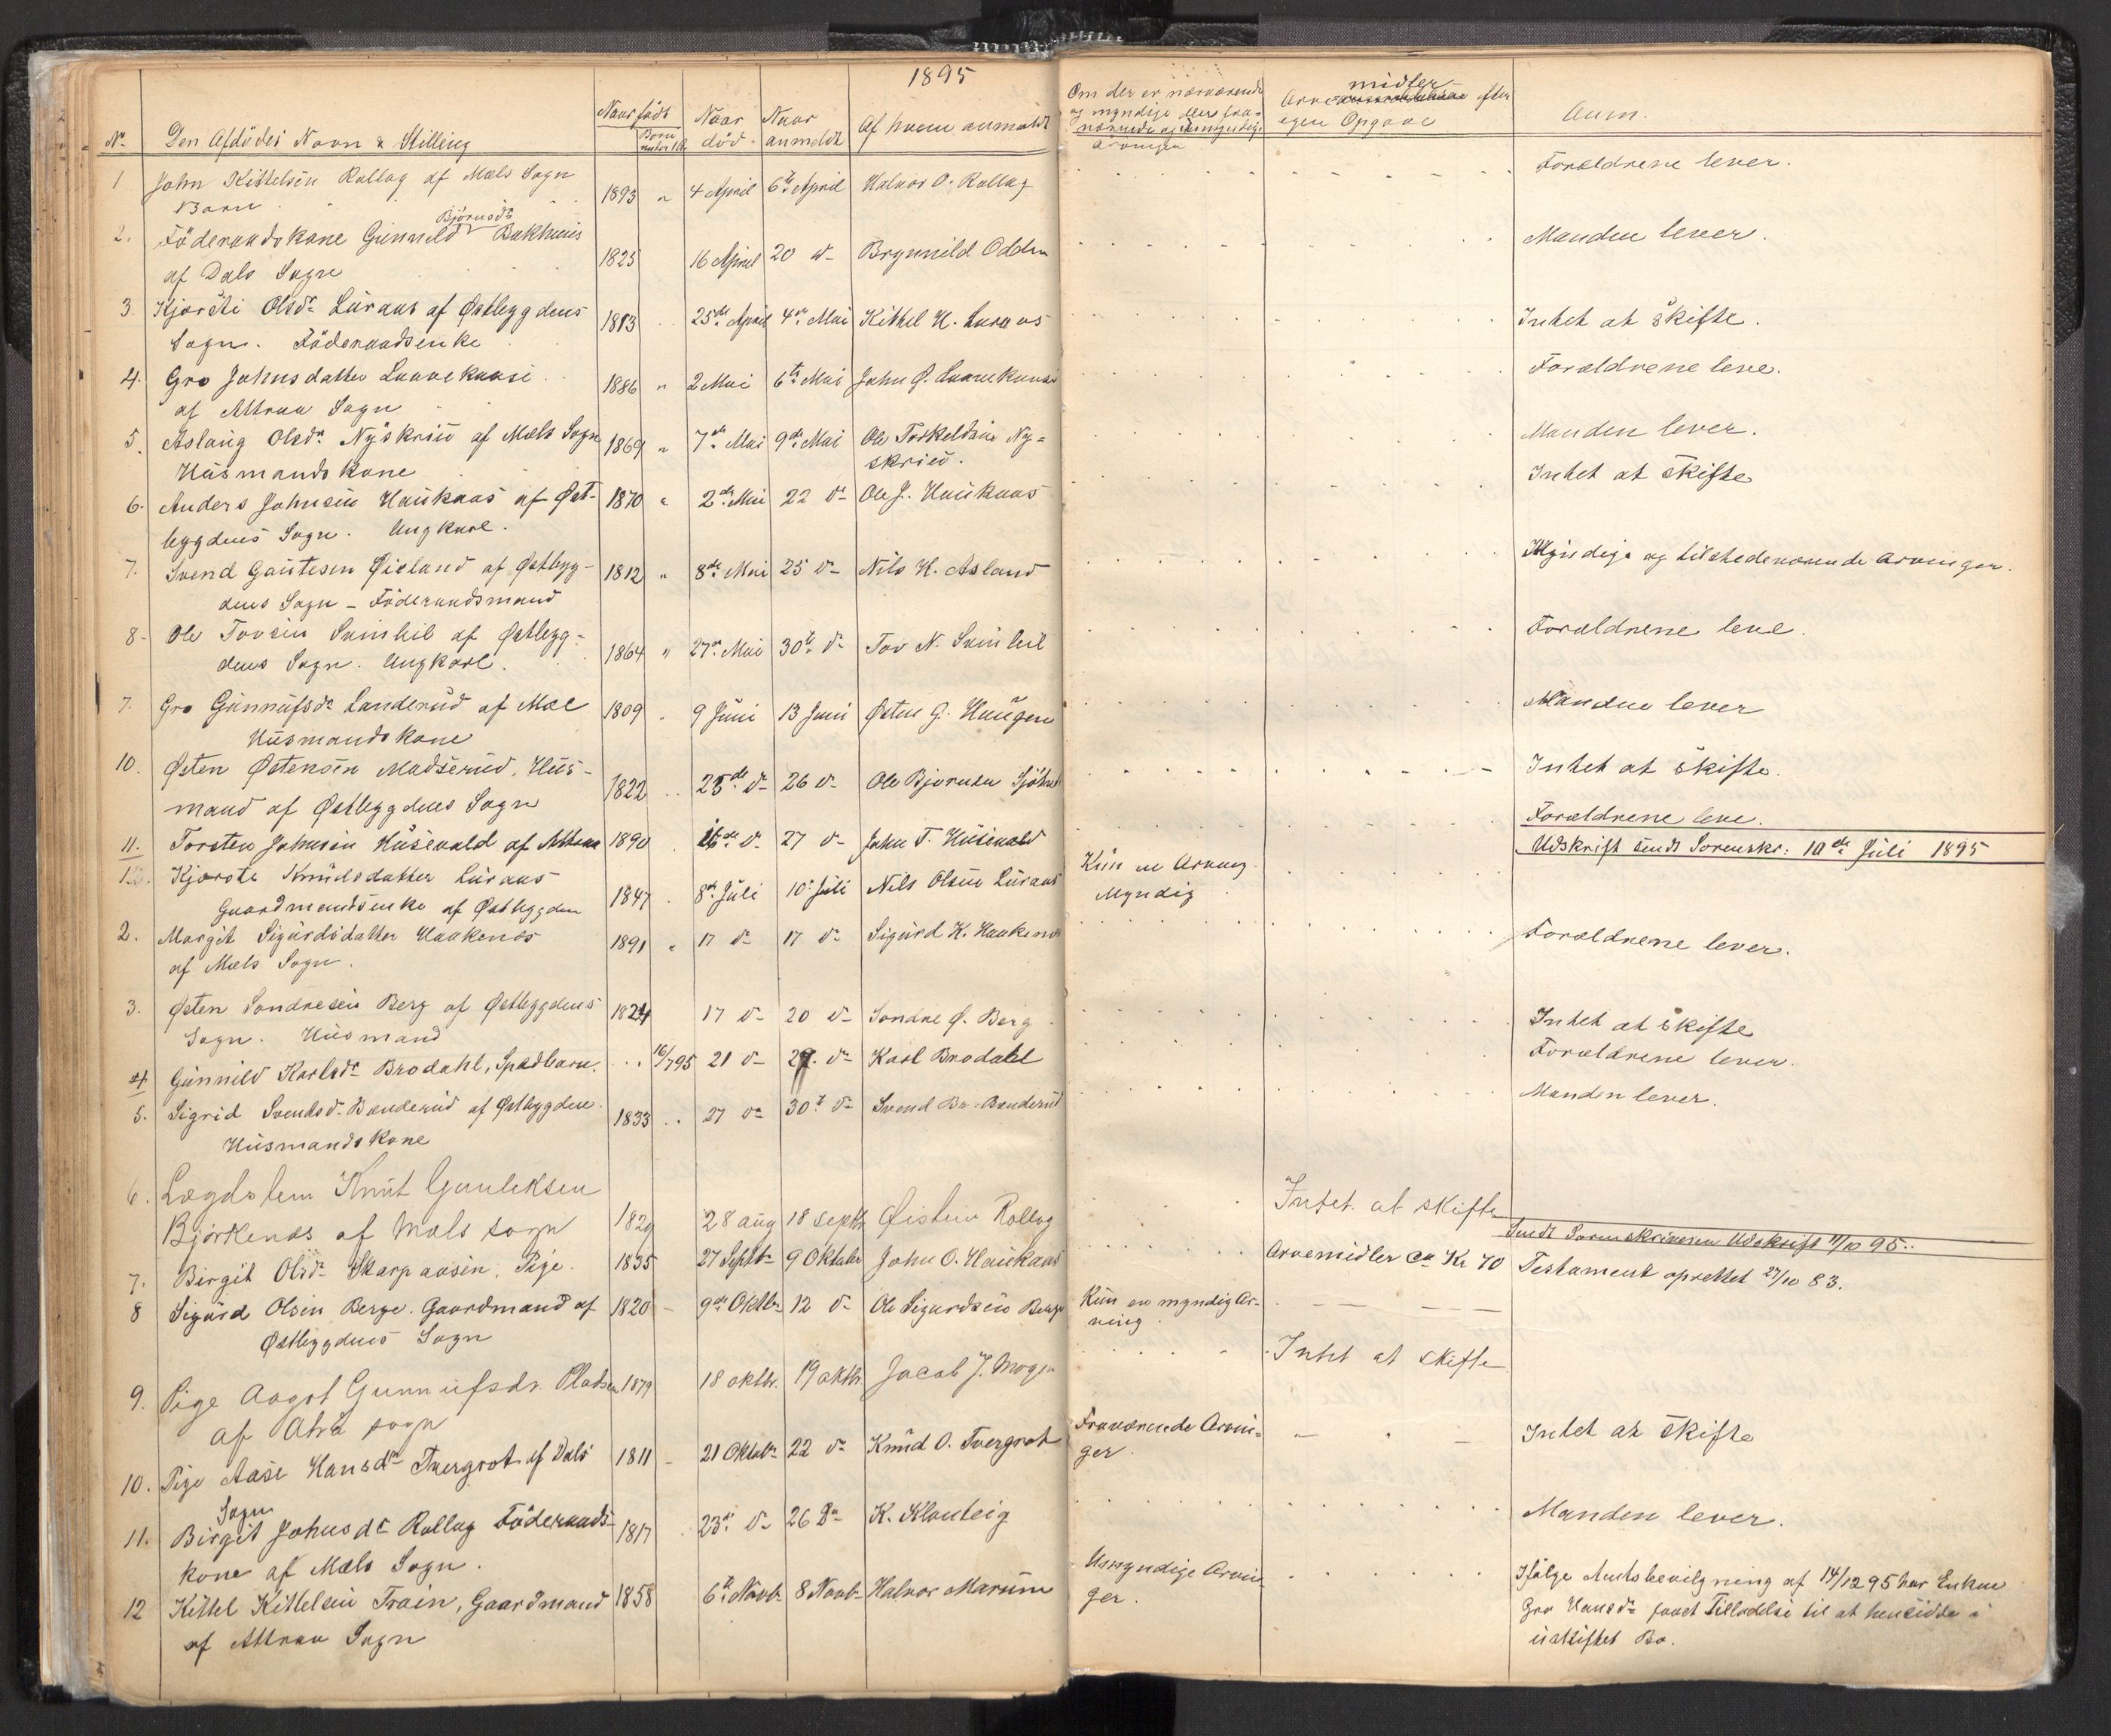 1895
No. Den Afdödes Navn & Stilling Naar födt Born under 1 Aar Naar död. Naar anmeldt Af hvem anmeldt Om der er nærværende og myndige eller fraværende og umyndige Arvinger Arvemidler efter egen Opgave Anm.
1 John Kittelsen Rollag af Mæls Sogn 1893 " 4 April 6te April Halvor O. Rollag Forældrene lever.
Barn
2. Föderaadskone Gunnild Björnsdr Bakhuus 1825 16 April 20 d- Brynnild Odden Manden lever.
af Dals Sogn
3. Kjersti Olsdr Luraas af Østbygdens 1813 25de April 4de Mai Kittel H. Luraas Intet at skifte.
Sogn. Föderaadsenke
4. Gro Johnsdatter Laavekaasi 1886 " 2 Mai 6te Mai John Ø. Laavekaasi Forældrene leve.
af Attraa Sogn
5. Aslaug Olsdr Nyskriu af Mæls Sogn 1869 " 7de Mai 9de Mai Ole Torkeldsen Ny= Manden lever.
Husmandskone skriu.
6. Anders Johnsen Haukaas af Øst- 1870 " 2de Mai 22 d- Ole J. Haukaas Intet at skifte
bygdens Sogn. Ungkarl.
7. Svend Gautesen Øieland af Østbyg- 1812 " 8de Mai 25 d- Nils H. Asland Myndige og tilstedeværende Arvinger.
dens Sogn - Föderaadsmand
8. Ole Tovsen Svinhil af Østbyg- 1864 " 27de Mai 30te d- Tov N. Svinhil Forældrene leve.
dens Sogn. Ungkarl.
7. Gro Gunnulfsdr Landerud af Mæl 1809 " 9 Juni 13 Juni Østen G. Haugen Manden lever
Husmandskone
10. Østen Østensen Madserud, Hus- 1822 25de d- 26 d- Ole Bjørnsen Intet at skifte.
mand af Østbygdens Sogn
11. Torsten Johnsen Husevold af Attraa 1890 16de d- 27 d- John T. Husevold Forældrene leve.
Udskrift sendt Sorenskr: 10de Juli 1895
1. Kjerste Knudsdatter Luraas 1847 8de Juli 10de Juli Nils Olsen Luraas Kun en Arving
Gaardmandsenke af Østbygden Myndig
2. Margit Sigurdsdatter Haakenes 1891 " 17 d- 17 d- Sigurd K. Haakenes Forældrene lever.
af Mæls Sogn.
3. Østen Sondresen Berg af Østbygdens 1824 17 d- 20 d- Sondre Ø. Berg Intet at skifte
Sogn. Husmand
4 Gunnild Karlsdr Brodahl, Spædbarn. 16/7 95 21 d- 29. d- Karl Brodahl Forældrene lever.
5. Sigrid Svendsd- Bonderud af Østbygden. 1833 27 d- 30te d- Svend Br. Bonderud Manden lever.
Husmandskone
6. Lægdslem Knut Gunleksen
Björkenes af Mæls sogn 1829 28 aug 18 septb Øistein Rollag Intet at skifte
Sendt Sorenskriveren Udskrift 11/10 95.
7. Birgit Olsdr Skarpaasen, Pige. 1835 27 Septbr 9 Oktober John O. Haukaas Arvemidler Ca Kr 70 Testament oprettet 27/10 83.
8 Sigurd Olsen Berge. Gaardmand af 1820 - 9de Oktbr 12 d- Ole Sigurdsen Berge Kun en myndig Ar-
Østbygdens Sogn ving.
9. Pige Aagot Gunnulfsdr. Pladsen 1879 18 oktbr. 19 oktbr. Jacob J. Mogen Intet at skifte
af Atrå sogn
10. Pige Aase Hansdr Tvergrot af Dals 1811 - 21 Oktobr 22 d- Knud O. Tvergrot Fraværende Arvin= ger. Intet at skifte
Sogn
11. Birgit Johnsdr Rollag Föderaads- 1817 23de d- 26 d- K. Klonteig Manden lever.
kone af Mæls Sogn.
12 Kittel Kittelsen Traen, Gaardmand 1858 6te Novb- 8 Novb- Halvor Marum Umyndige Arvin ger. Ifølge Amtsbevilgning af 14/12 95 har Enken
af Attraa Sogn Gro Hansdr faaet Tilladelse til at hensidde i
uskiftet Bo.